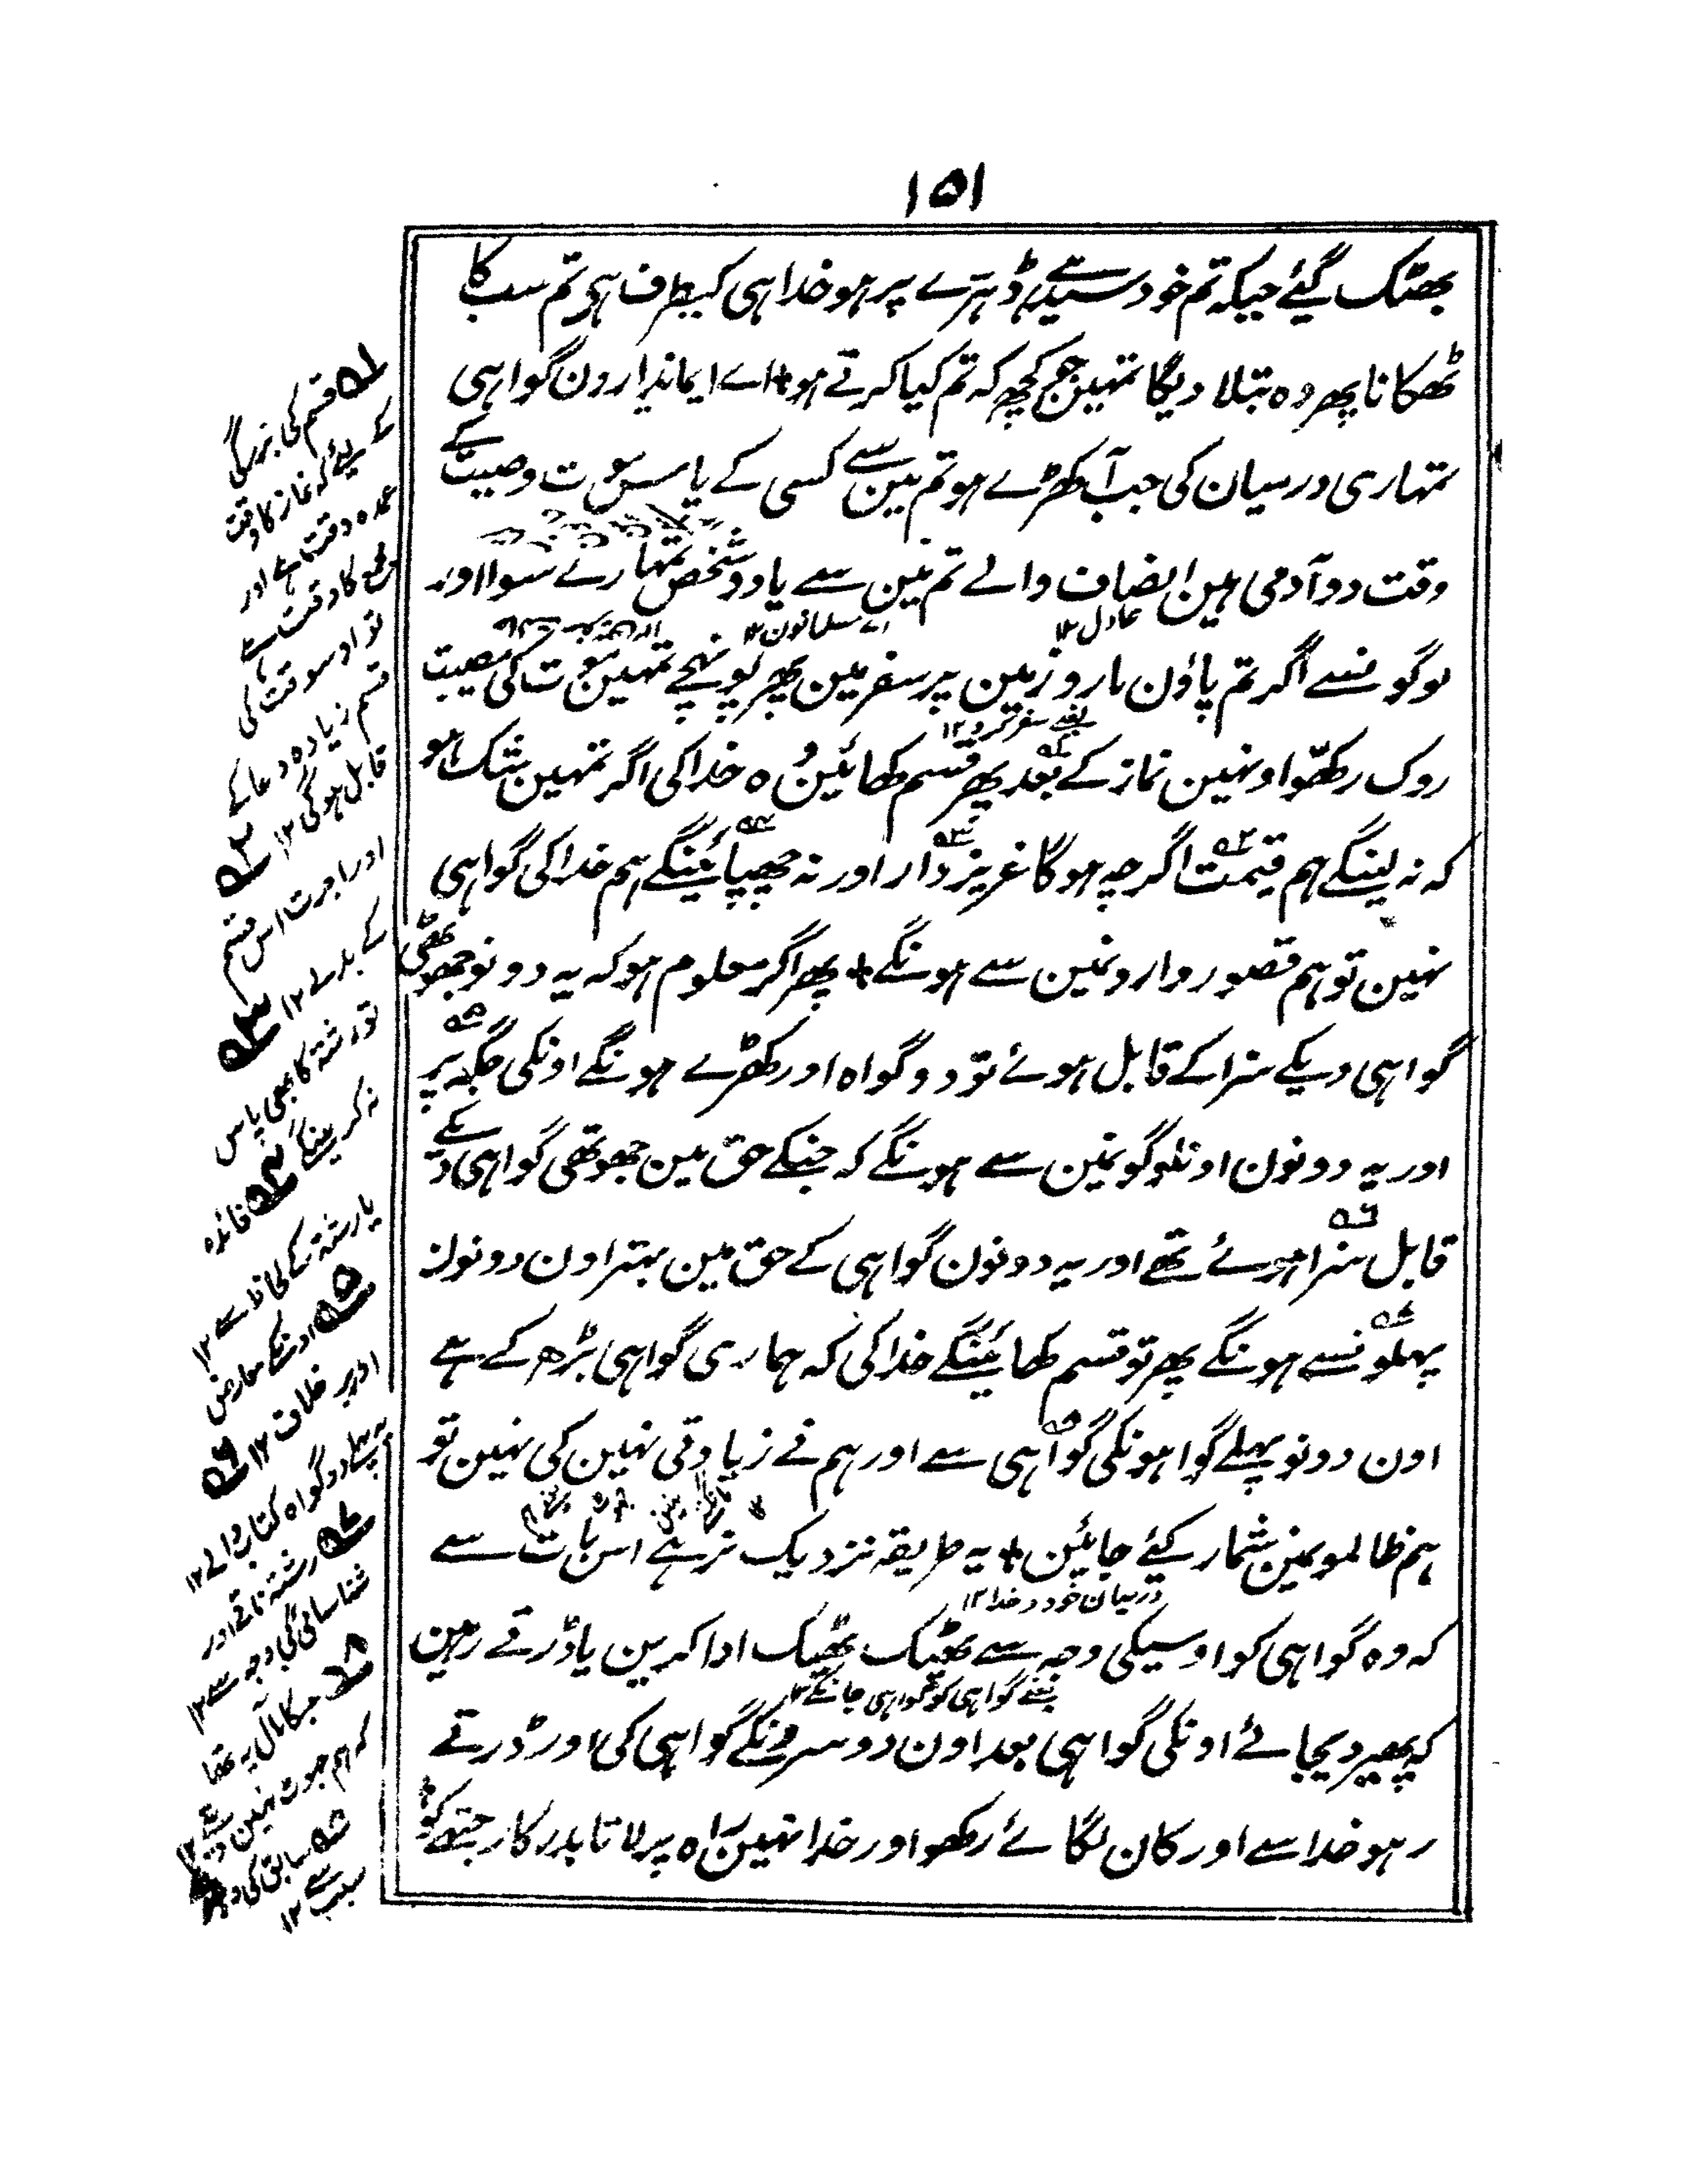 ۱۵۱
بھٹک گیئے جبکہ تم خود سیدہے ڈہرّے پر ہو خدا ہی کیطرف ہی تم سب کا
ٹھکانا پھر وہ بتلا دیگا تمہین جو کچھ کہ تم کیا کرتے ہو + اے ایماندارون گواہی
تمہاری درمیان کی جب آ کھڑے ہو تم مین سے کسی کے پاس موت وصیت کے
وقت دو آدمی ہین انصاف والے تم مین سے یا دو شخص تمہارے سوا اور
عادل ۱۲
اے مسلمانون ۱۲
لوگونسے اگر تم پاؤن مارو زمین پر سفر مین پھر پہونچے تمہین موت کی مصیبت
یعنے سفر کرو ۱۲
روک رکھّو اونہین نماز کے بعد پھر قسم کھائین وُہ خدا کی اگر تمہین شک ہو
کہ نہ لینگے ہم قیمت اگرچہ ہوگا عزیز دار اور نہ چھپائینگے ہم خدا کی گواہی
نہین تو ہم قصور وارونمین سے ہونگے + پھر اگر معلوم ہو کہ یہ دونو جھوٹھی
گواہی دیکے سزا کے قابل ہوئے تو دو گواہ اور کھڑے ہونگے اونکی جگہ پر
اور یہ دونون اونلوگونمین سے ہونگے کہ جنکے حق مین جھوٹھی گواہی دیکے
قابل سزا ہوئے تھے اور یہ دونون گواہی کے حق مین بہتر اون دونون
پہلونسے ہونگے پھر تو قسم کھائینگے خدا کی کہ ہماری گواہی بڑھ کے ہے
اون دونو پہلے گواہونکی گواہی سے اور ہم نے زیادتی نہین کی نہین تو
ہم ظالمونمین شمار کیئے جائین + یہ طریقہ نزدیک تر ہے اس بات سے
درمیان خود و خدا ۱۲
کہ وہ گواہی کو اوسیکی وجہ سے ٹھیک ٹھیک ادا کرین یا ڈرتے رہین
یعنے گواہی کو گواہی جانکے ۱۲
کہ پھیر دیجائے اونکی گواہی بعد اون دوسرونکے گواہی کی اور ڈرتے
رہو خدا سے اور کان لگائے رکھو اور خدا نہین راہ پر لاتا بدرکار جتھے کو
۵۱ قسم کی بزرگی
کے لیئے کہ نماز کا وقت
عمدہ وقت ہے اور
دعا کا وقت ہے
تو اوسوقت کی
قسم زیادہ دعا کے
قابل ہوگی ۱۲ ۵۲
اور اجرت اس قسم
کے بدلے ۱۲ ۵۳
تو رشتہ کا بھی پاس
نہ کرینگے ۵۴ فائدہ
یا رشتہ کے لحاظ سے ۱۲
۵۵ اونکے معارض
اور بر خلاف ۱۲ ۵۶
پہلے دو گواہ کتاب والے ۱۲
۵۷ رشتہ ناتے اور
شناسائی کی وجہ سے ۱۲
۵۸ جسکا مآل یہ تھا
کہ ہم جھوٹ نہین
۵۹ سابق کی
سبب سے ۱۲